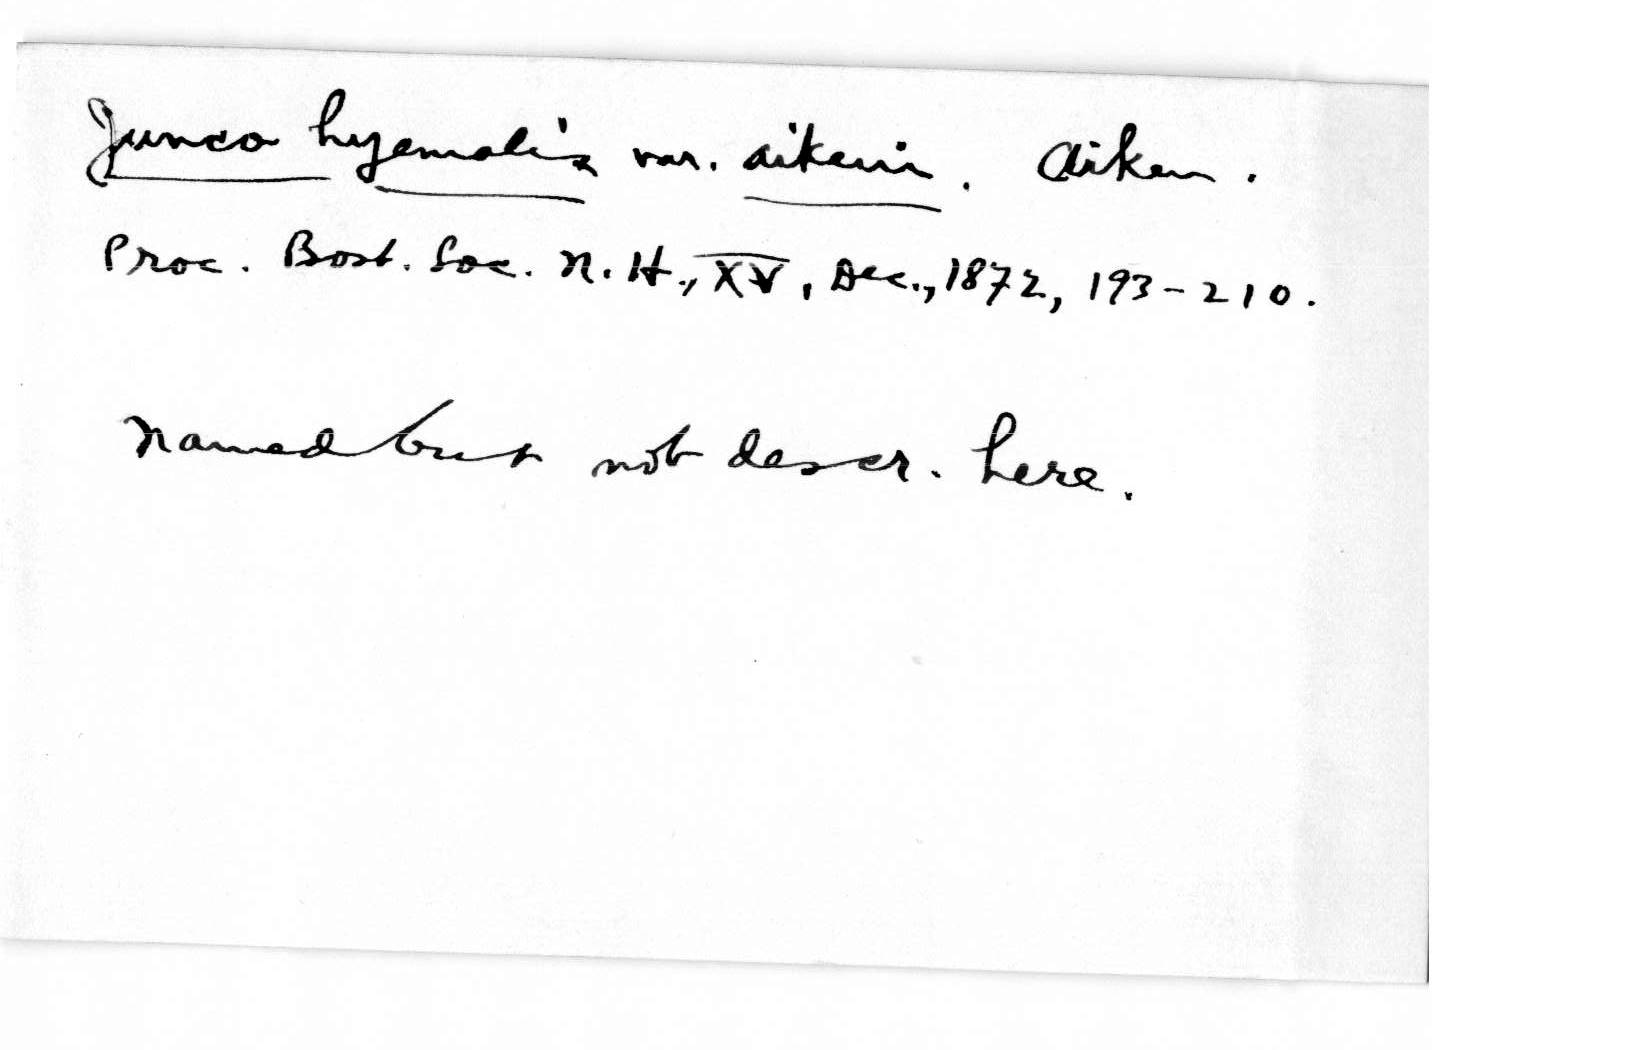 Junco hyemalis var. aikeni. Aiken.
Proc. Bost. Soc. N. H., XV, Dec., 1872, 193-210.
Named but not descr. here.